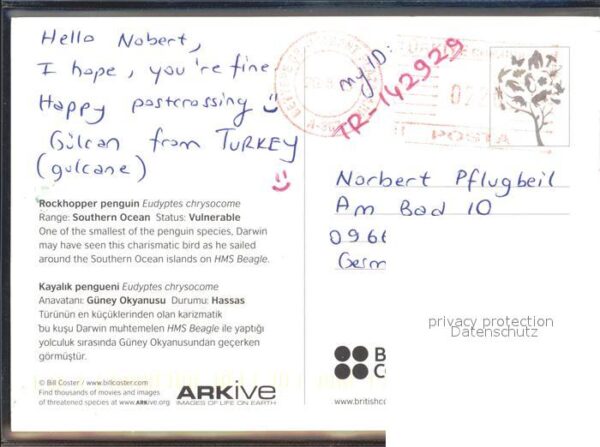 Hello Nobert,
I hope, you're fine.
Happy postcrossing
Gülcan from TURKEY
(gulcane)
my ID:
TR-142929
POSTA
Norbert Pflugbeil
Am Bad 10
0966
Germ
Rockhopper penguin Eudyptes chrysocome
Range: Southern Ocean Status: Vulnerable
One of the smallest of the penguin species, Darwin
may have seen this charismatic bird as he sailed
around the Southern Ocean islands on HMS Beagle.
Kayalık pengueni Eudyptes chrysocome
Anavatanı: Güney Okyanusu Durumu: Hassas
Türünün en küçüklerinden olan karizmatik
bu kuşu Darwin muhtemelen HMS Beagle ile yaptığı
yolculuk sırasında Güney Okyanusundan geçerken
görmüştür.
© Bill Coster / www.billcoster.com
Find thousands of movies and images
of threatened species at www.ARKive.org
ARKive
IMAGES OF LIFE ON EARTH
privacy protection
Datenschutz
B
C
www.britishc